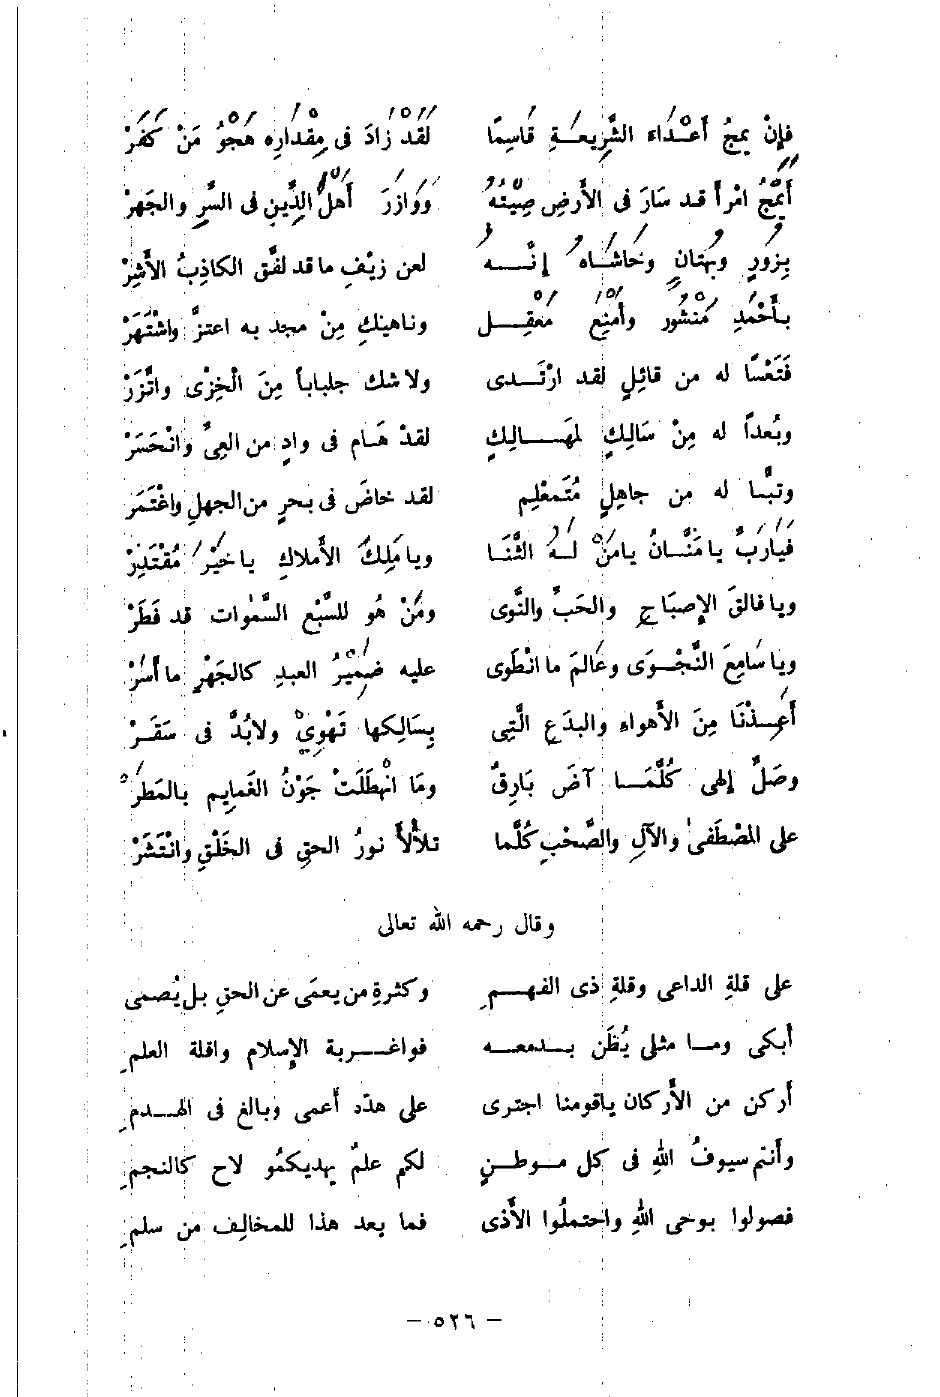 فإِنْ يهجُ أَعْدَاءَ الشَّرِيعَةِ قَاسِمًا لَقَدْ زَادَ فى مِقْدَارِه هَجْوُ مَنْ كَفَرْ
أَيَهْجُ امْرأً قد سَارَ فى الأَرضِ صِيْتُهُ وَوَازَرَ أَهْلَ الدِّينِ فى السِّرِ والجَهرْ
بِزورٍ وبُهتانٍ وحَاشَاهُ إنَّه لعن زيْفِ ما قد لفَّق الكاذِبُ الأَشِرْ
بأَحْمَدِ مَنْشُورٍ وأَمْنَعِ مَعْقِل وناهِيكِ مِنْ مجد به اعتزَّ واشْتَهَرْ
فَتَعْسًا له من قائِلٍ لقد ارْتَدى ولا شك جلباباً مِنَ الْخِزْى واتَّزَرْ
وبُعداً له مِنْ سَالِكٍ لمهَالِكٍ لقدْ هَام فى وادٍ من العِىِّ وانْحَسَرْ
وتبًّا له من جاهِلٍ مُتَمعْلِمٍ لقد خاضَ فى بحرٍ من الجهلِ واغْتَمَرَ
فَيَارَبِّ يا مَنَّانُ يامَنْ لَهُ الثَّنَا ويا مَلِكَ الأَملاكِ يا خَيْرَ مُقْتَدِرْ
ويا فالقَ الإِصبَاحِ والحَبِّ والنَّوى ومَنْ هُو للسَّبْعِ السَّمٰوات قد فَطَرْ
ويا سَامِعَ النَّجْوَى وعَالمَ ما انْطَوى عليه ضَمِيْرُ العبدِ كالجَهْرِ ما أَسَرْ
أَعِذْنَا مِنَ الأَهواءِ والبدَعِ الَّتِى بِسَالِكها تَهْوِيْ ولابُدَّ فى سَقَرْ
وصَلِّ إلهى كُلَّمَا آضَ بَارِقٌ ومَا انْهَطَلَتْ جَوْنُ الغَمايِم بالمَطرْ
على المصْطَفىٰ والآلِ والصَّحْبِ كُلَّما تلأْلأَ نورُ الحقِ فى الخَلْقِ وانْتَشَرْ
وقال رحمه الله تعالى
على قلةِ الداعى وقلةِ ذى الفهمِ وكثرةِ من يعمَى عن الحقِ بل يُصمى
أبكى وما مثلى يُظَن بدمعه فواغربة الإِسلام واقلة العلمِ
أركن من الأَركان ياقومنا اجترى على هدِّه أعمى وبالغ فى الهدمِ
وأنتم سيوفُ اللهِ فى كل موطنٍ لكم علمٌ يهديكمُو لاح كالنجمِ
فصولوا بوحى اللهِ واحتملُوا الأَذى فما بعد هذا للمخالِف من سلمِ
— ٥٢٦ —